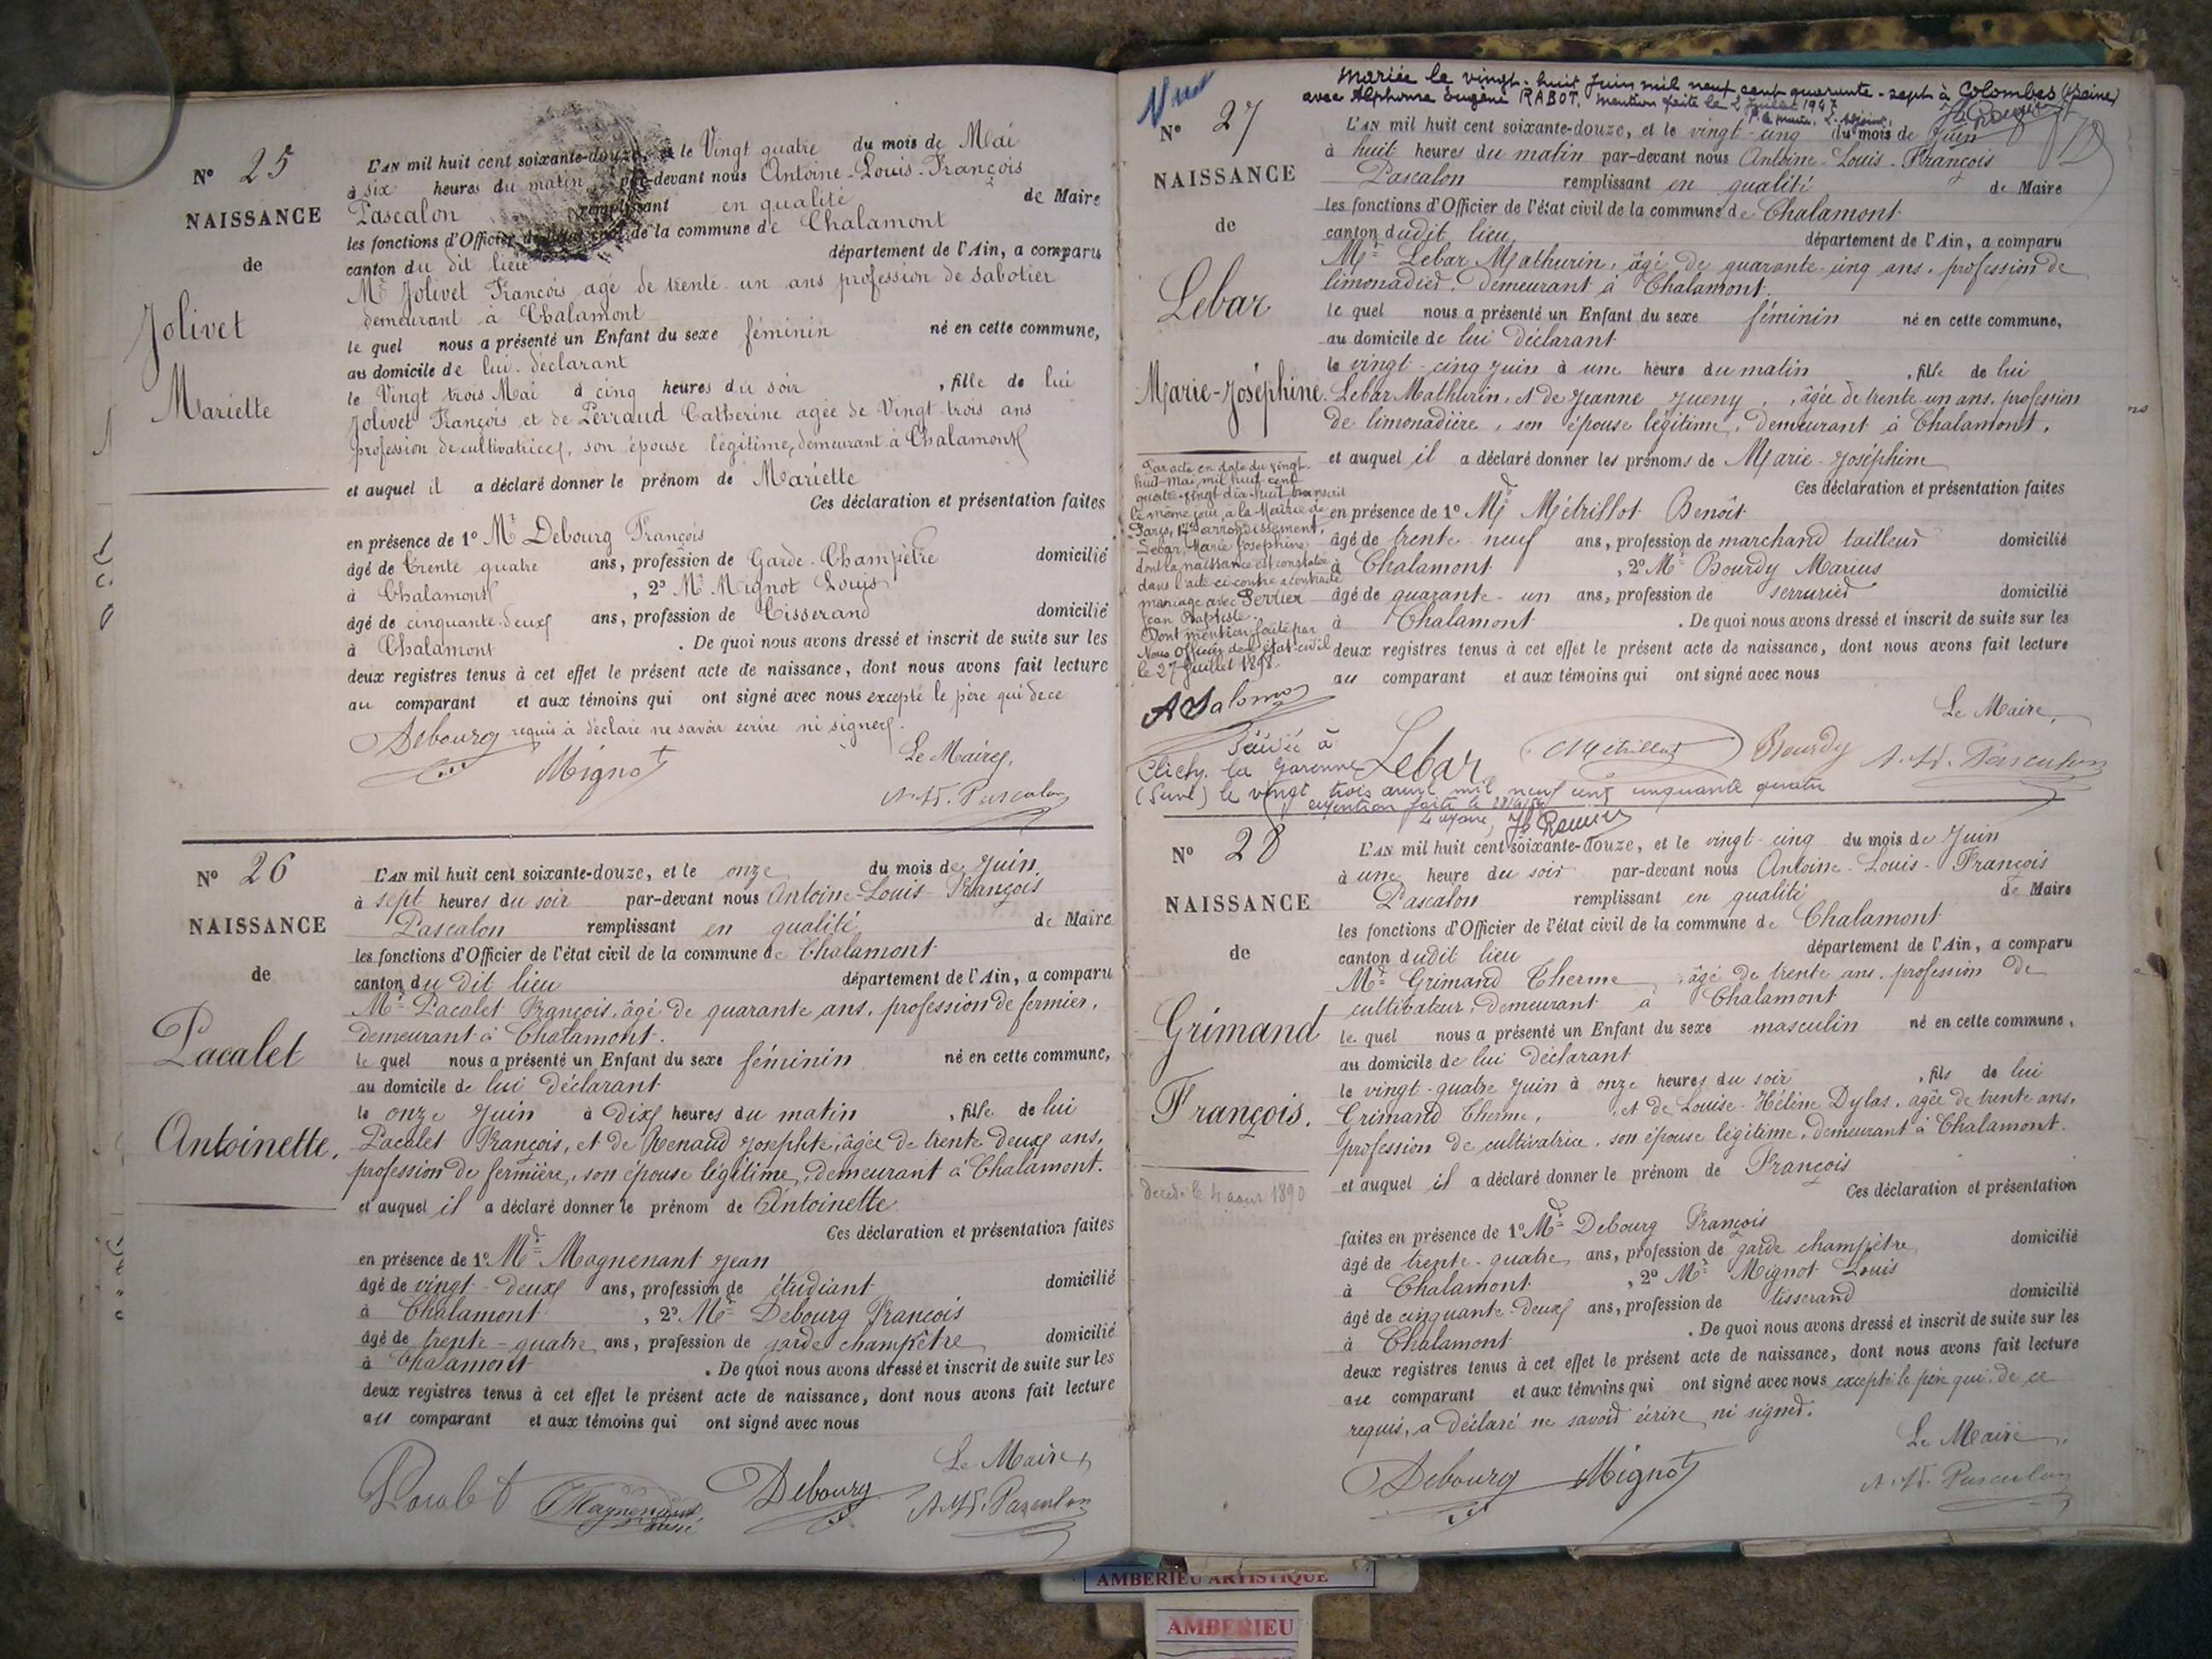 N° 25
NAISSANCE
de
Jolivet
Mariette
L'AN mil huit cent soixante-douze, et le Vingt quatre du mois de Mai
à six heures du matin par-devant nous Antoine-Louis-François
Pascalon remplissant en qualité de Maire
les fonctions d'Officier de l'état civil de la commune de Chalamont
canton du dit lieu département de l'Ain, a comparu
Mr Jolivet François agé de trente un ans profession de Sabotier
demeurant à Chalamont
le quel nous a présenté un Enfant du sexe féminin né en cette commune,
au domicile de lui déclarant
le Vingt trois Mai à cinq heures du soir , fille de lui
Jolivet François et de Perraud Catherine agée de Vingt trois ans
profession de cultivatrice, son épouse légitime, demeurant à Chalamont
et auquel il a déclaré donner le prénom de Mariette
Ces déclaration et présentation faites
en présence de 1° Mr Debourg François
âgé de trente quatre ans, profession de Garde-Champêtre domicilié
à Chalamont , 2° Mr Mignot Louis
âgé de cinquante-deux ans, profession de Tisserand domicilié
à Chalamont . De quoi nous avons dressé et inscrit de suite sur les
deux registres tenus à cet effet le présent acte de naissance, dont nous avons fait lecture
au comparant et aux témoins qui ont signé avec nous excepté le père qui de ce
requis à déclaré ne savoir écrire ni signer.
Debourg Mignot Le Maire,
Pascalon
N° 26
NAISSANCE
de
Pacalet
Antoinette.
L'AN mil huit cent soixante-douze, et le onze du mois de Juin
à sept heures du soir par-devant nous Antoine-Louis-François
Pascalon remplissant en qualité de Maire
les fonctions d'Officier de l'état civil de la commune de Chalamont
canton du dit lieu département de l'Ain, a comparu
Mr Pacalet François, âgé de quarante ans, profession de fermier,
demeurant à Chalamont.
le quel nous a présenté un Enfant du sexe féminin né en cette commune,
au domicile de lui déclarant
le onze Juin à dix heures du matin , fille de lui
Pacalet François, et de Renaud Josephte, âgée de trente deux ans,
profession de fermière, son épouse légitime, demeurant à Chalamont.
et auquel il a déclaré donner le prénom de Antoinette
Ces déclaration et présentation faites
en présence de 1° Mr Magnenant Jean
âgé de vingt-deux ans, profession de étudiant domicilié
à Chalamont , 2° Mr Debourg François
âgé de trente-quatre ans, profession de garde champêtre domicilié
à Chalamont . De quoi nous avons dressé et inscrit de suite sur les
deux registres tenus à cet effet le présent acte de naissance, dont nous avons fait lecture
au comparant et aux témoins qui ont signé avec nous
Le Maire
Magnenant Debourg Pascalon
Vu
Mariée le vingt-huit Juin mil neuf cent quarante-sept à Colombes (Seine)
avec Alphonse Eugène RABOT. Mention faite le 2 Juillet 1947
N° 27
NAISSANCE
de
Lebar
Marie-Joséphine.
L'AN mil huit cent soixante-douze, et le vingt-cinq du mois de Juin
à huit heures du matin par-devant nous Antoine-Louis-François
Pascalon remplissant en qualité de Maire
les fonctions d'Officier de l'état civil de la commune de Chalamont
canton dudit lieu département de l'Ain, a comparu
Mr Lebar Mathurin, âgé de quarante-cinq ans, profession de
limonadier, demeurant à Chalamont.
le quel nous a présenté un Enfant du sexe féminin né en cette commune,
au domicile de lui déclarant
le vingt-cinq Juin à une heure du matin , fille de lui
Lebar Mathurin, et de Jeanne Jueny, âgée de trente-un ans, profession
de limonadière, son épouse légitime, demeurant à Chalamont,
et auquel il a déclaré donner les prénoms de Marie-Joséphine
Ces déclaration et présentation faites
en présence de 1° Mr Métrillot Benoît
âgé de trente neuf ans, profession de marchand tailleur domicilié
à Chalamont , 2° Mr Bourdy Marius
âgé de quarante-un ans, profession de serrurier domicilié
à Chalamont . De quoi nous avons dressé et inscrit de suite sur les
deux registres tenus à cet effet le présent acte de naissance, dont nous avons fait lecture
au comparant et aux témoins qui ont signé avec nous
Par acte en date du vingt-
huit Mai mil huit cent
quatre-vingt dix-huit transcrit
le même jour, à la Mairie de
Paris, 17e arrondissement,
Lebar, Marie Joséphine,
dont la naissance est constatée
dans l'acte ci-contre a contracté
mariage avec Perrier
Jean Baptiste.
Dont mention faite par
Nous Officier de l'état-civil
le 27 Juillet 1898.
A Salomon
Le Maire,
Lebar Métrillot Bourdy Pascalon
Décédée à
Clichy la Garenne
(Seine) le vingt trois avril mil neuf cent cinquante quatre
mention faite le
Le Maire,
N° 28
NAISSANCE
de
Grimand
François.
décédé le 4 août 1890
L'AN mil huit cent soixante-douze, et le vingt-cinq du mois de Juin
à une heure du soir par-devant nous Antoine-Louis-François
Pascalon remplissant en qualité de Maire
les fonctions d'Officier de l'état civil de la commune de Chalamont
canton dudit lieu département de l'Ain, a comparu
Mr Grimand Therme, âgé de trente ans, profession de
cultivateur, demeurant à Chalamont
le quel nous a présenté un Enfant du sexe masculin né en cette commune,
au domicile de lui déclarant
le vingt-quatre Juin à onze heures du soir , fils de lui
Grimand Therme, et de Louise-Hélène Dylas, agée de trente ans,
profession de cultivatrice, son épouse légitime, demeurant à Chalamont.
et auquel il a déclaré donner le prénom de François
Ces déclaration et présentation
faites en présence de 1° Mr Debourg François
âgé de trente-quatre ans, profession de garde champêtre domicilié
à Chalamont , 2° Mr Mignot Louis
âgé de cinquante-deux ans, profession de tisserand domicilié
à Chalamont . De quoi nous avons dressé et inscrit de suite sur les
deux registres tenus à cet effet le présent acte de naissance, dont nous avons fait lecture
au comparant et aux témoins qui ont signé avec nous excepté le père qui de ce
requis, a déclaré ne savoir écrire ni signer.
Le Maire
Debourg Mignot Pascalon
AMBERIEU ARTISTIQUE
AMBERIEU